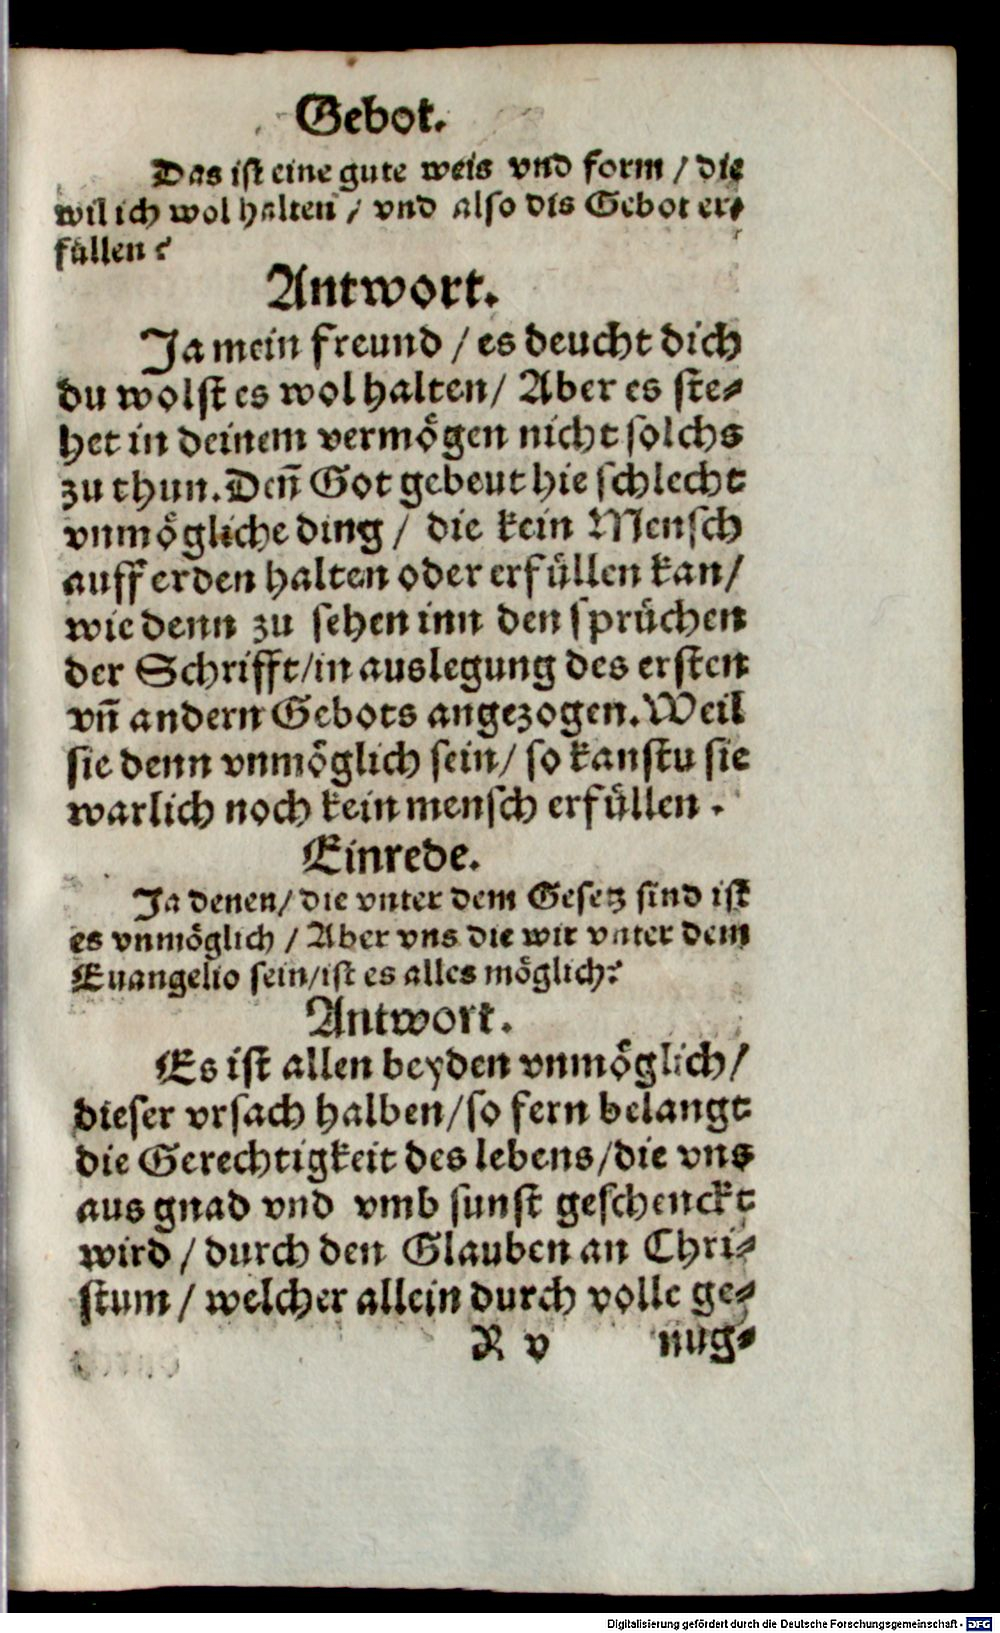 Gebot.
Das ist eine gute weis vnd form / die
wil ich wol halten / vnd also dis Gebot er⸗
füllen?
Antwort.
Ja mein freund / es deucht dich
du wolst es wol halten / Aber es ste⸗
het in deinem vermögen nicht solchs
zu thun. Deñ Got gebeut hie schlecht
vnmögliche ding / die kein Mensch
auff erden halten oder erfüllen kan /
wie denn zu sehen inn den sprüchen
der Schrifft / in auslegung des ersten
vñ andern Gebots angezogen. Weil
sie denn vnmöglich sein / so kanstu sie
warlich noch kein mensch erfüllen.
Einrede.
Ja denen / die vnter dem Gesetz sind ist
es vnmöglich / Aber vns die wir vnter dem
Euangelio sein / ist es alles möglich?
Antwort.
Es ist allen beyden vnmöglich /
dieser vrsach halben / so fern belangt
die Gerechtigkeit des lebens / die vns
aus gnad vnd vmb sunst geschenckt
wird / durch den Glauben an Chri⸗
stum / welcher allein durch volle ge⸗
R v nug⸗
Digitalisierung gefördert durch die Deutsche Forschungsgemeinschaft - DFG